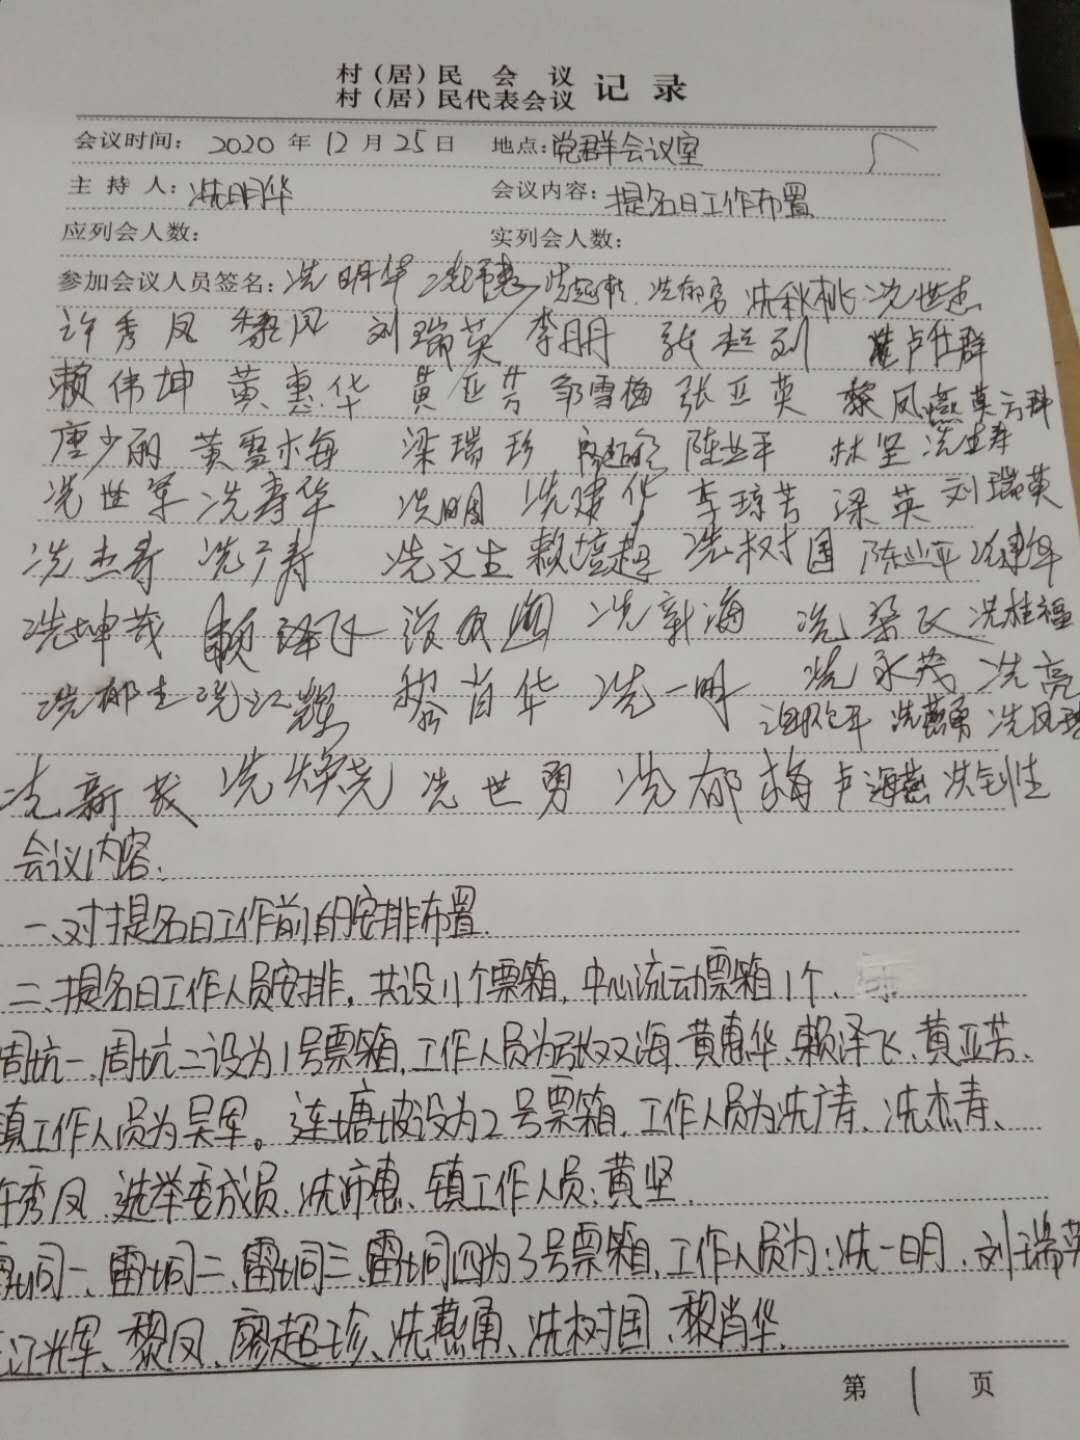 村（居）民 会 议
村（居）民代表会议 记 录
会议时间： 2020 年 12 月 25 日 地点：党群会议室
主 持 人：冼明华 会议内容：提名日工作布置
应列会人数： 实列会人数：
参加会议人员签名：冼明华 冼郁勇 冼秋桃 冼世志
许秀凤 黎凤 刘瑞英 李丹丹 张超列 卢仕群
赖伟坤 黄惠华 黄亚芳 邹雪梅 张亚英 黎凤燕
唐少丽 黄雪梅 梁瑞珍 陈业平 林坚 冼生寿
冼世军 冼寿华 冼明国 冼建华 李琼芳 梁英 刘瑞英
冼杰寿 冼广寿 冼文生 赖培超 冼树国 陈业平
冼坤茂 赖泽飞 冼新海 冼桂福
冼郁生 冼江辉 黎肖华 冼一明 冼永茂 冼亮
冼燕勇
冼新茂 冼焕尧 冼世勇 冼郁梅 卢海燕 洪钊生
会议内容：
一、对提名日工作前的安排布置.
二、提名日工作人员安排，共设11个票箱，中心流动票箱1个、
周坑一、周坑二设为1号票箱，工作人员为张双海、黄惠华、赖泽飞、黄亚芳、
镇工作人员为吴军。莲塘坡设为2号票箱，工作人员为冼广寿、冼杰寿、
许秀凤、选举委成员、冼沛惠、镇工作人员：黄坚.
雷垌一、雷垌二、雷垌三、雷垌四为3号票箱，工作人员为：冼一明、刘瑞英
江辉、黎凤、廖超珍、冼燕勇、冼树国、黎肖华.
第 1 页